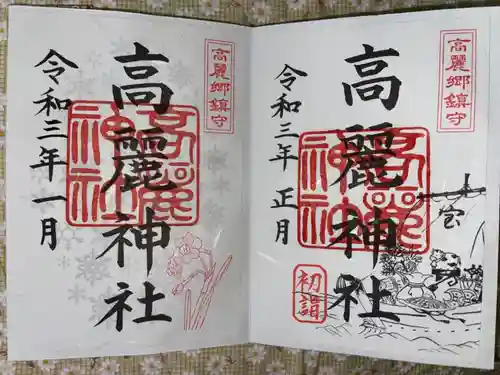 高麗郷鎮守
宝
高麗神社
高麗
神社
令和三年 正月
初詣
高麗郷鎮守
高麗神社
高麗
神社
令和三年一月